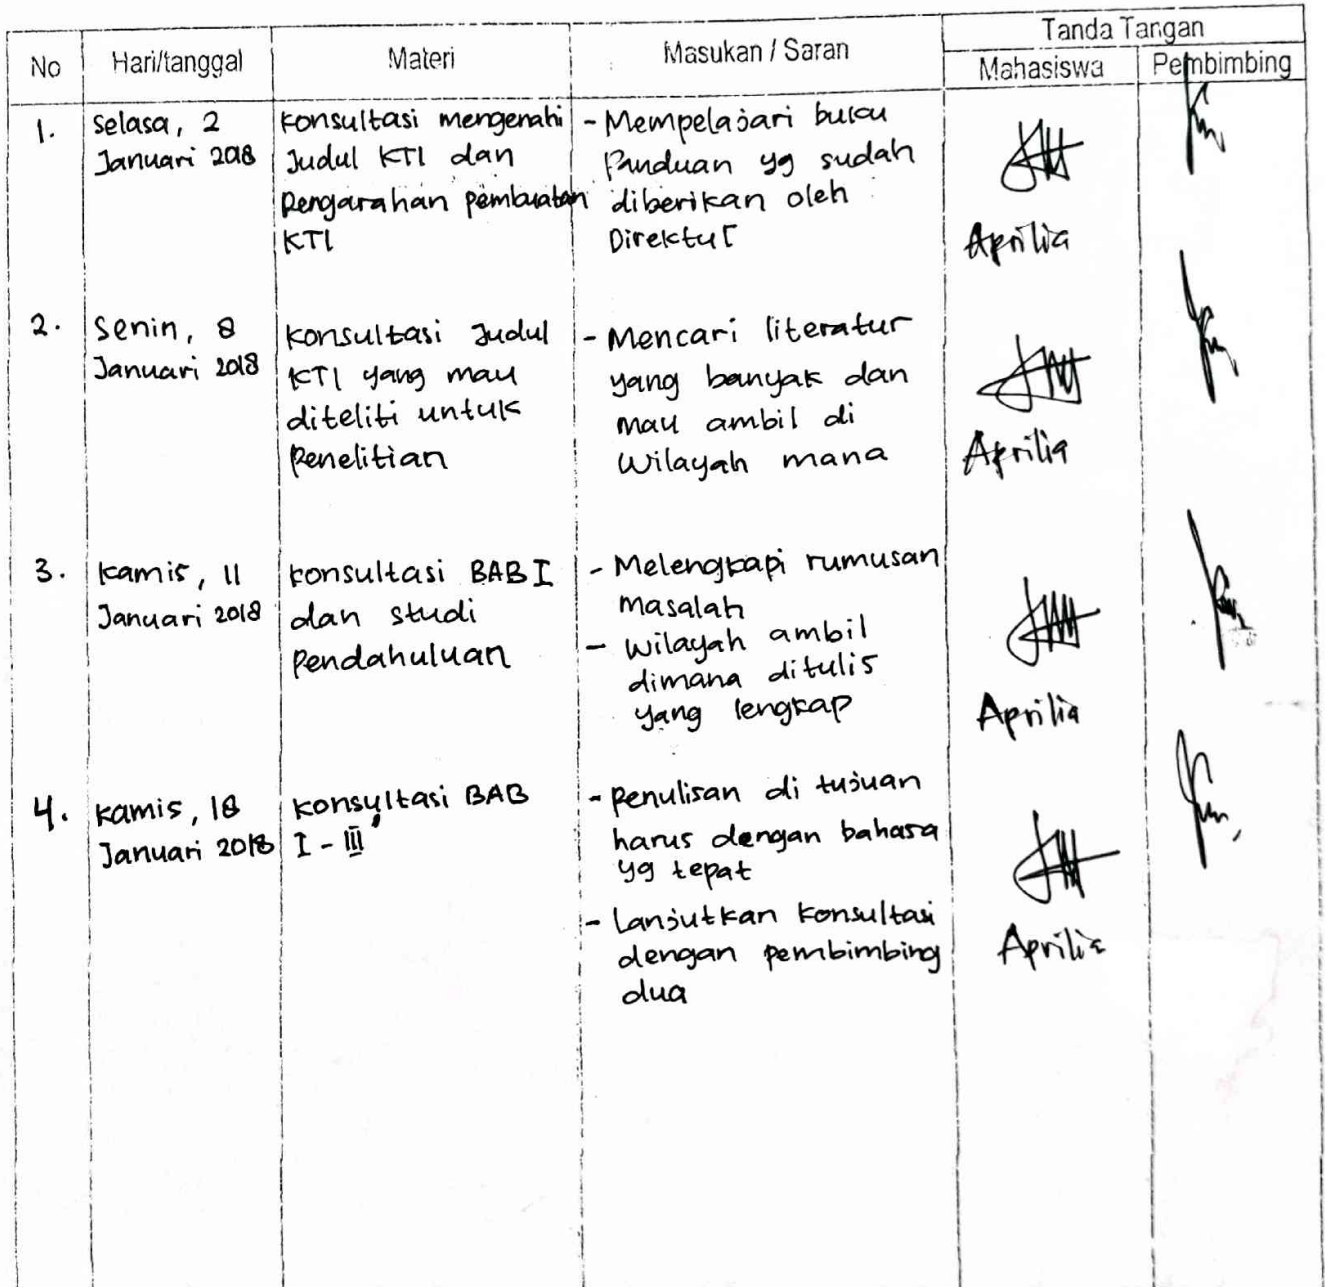 No
Hari/tanggal
Materi
Masukan / Saran
Tanda Tangan
Mahasiswa
Pembimbing
1.
Selasa, 2
Januari 2018
Konsultasi mengenahi
Judul KTI dan
Pengarahan pembuatan
KTI
- Mempelajari buku
Panduan yg sudah
diberikan oleh
Direktur
Aprilia
2.
Senin, 8
Januari 2018
Konsultasi Judul
KTI yang mau
diteliti untuk
Penelitian
- Mencari literatur
yang banyak dan
mau ambil di
Wilayah mana
Aprilia
3.
Kamis, 11
Januari 2018
Konsultasi BAB I
dan studi
Pendahuluan
- Melengkapi rumusan
masalah
- Wilayah ambil
dimana ditulis
yang lengkap
Aprilia
4.
Kamis, 18
Januari 2018
Konsultasi BAB
I - III
- Penulisan di tujuan
harus dengan bahasa
yg tepat
- Lanjutkan Konsultasi
dengan pembimbing
dua
Aprilia